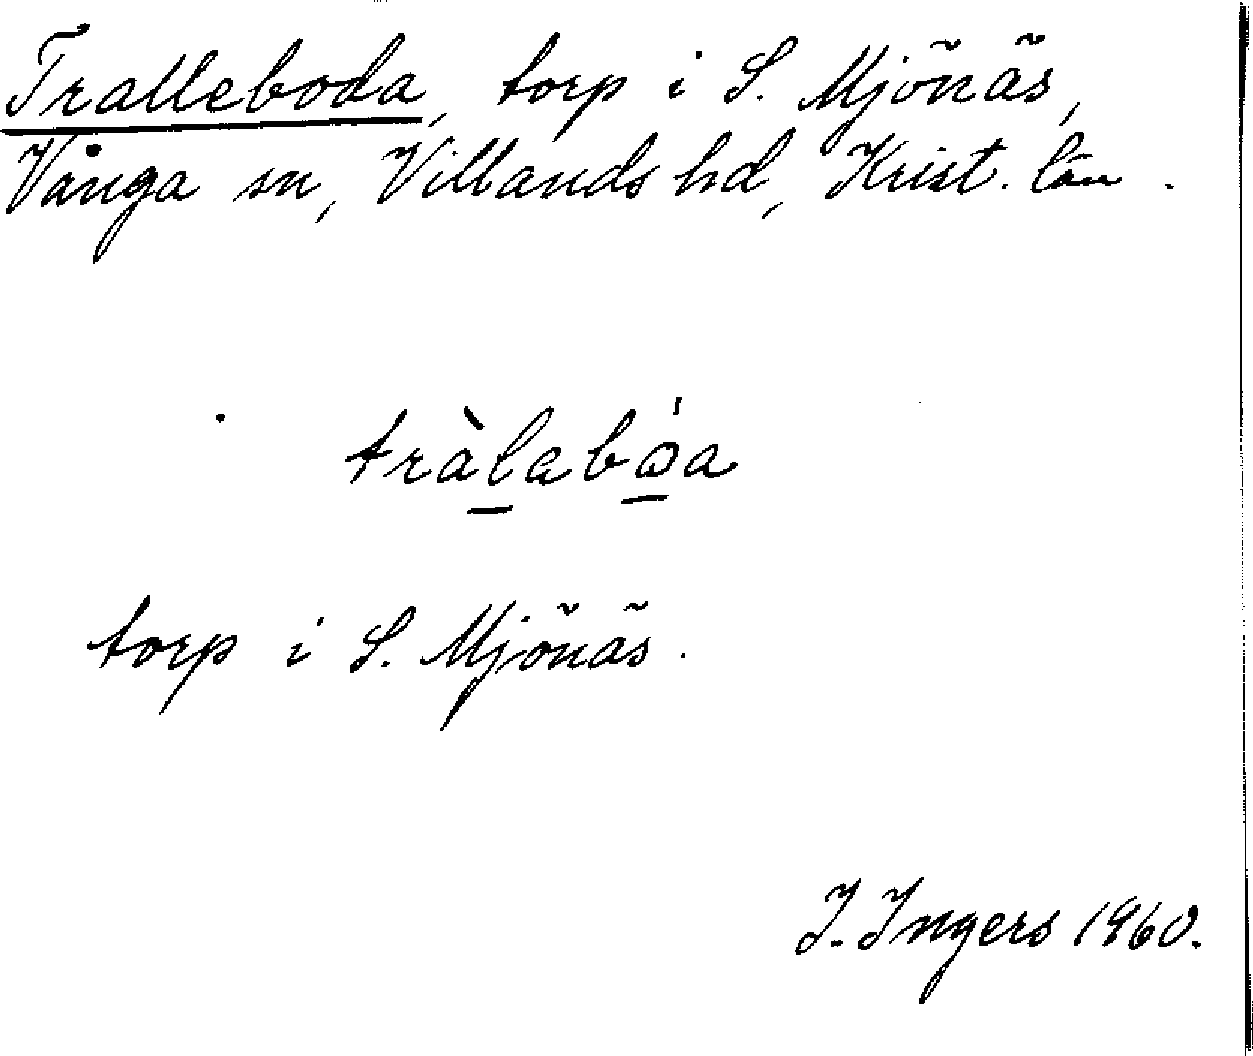 Tralleboda, torp i S. Mjönäs,
Vånga sn, Villands hd, Krist. län.
tràl̠abɷ̠́a
torp i S. Mjönäs.
I. Ingers 1960.